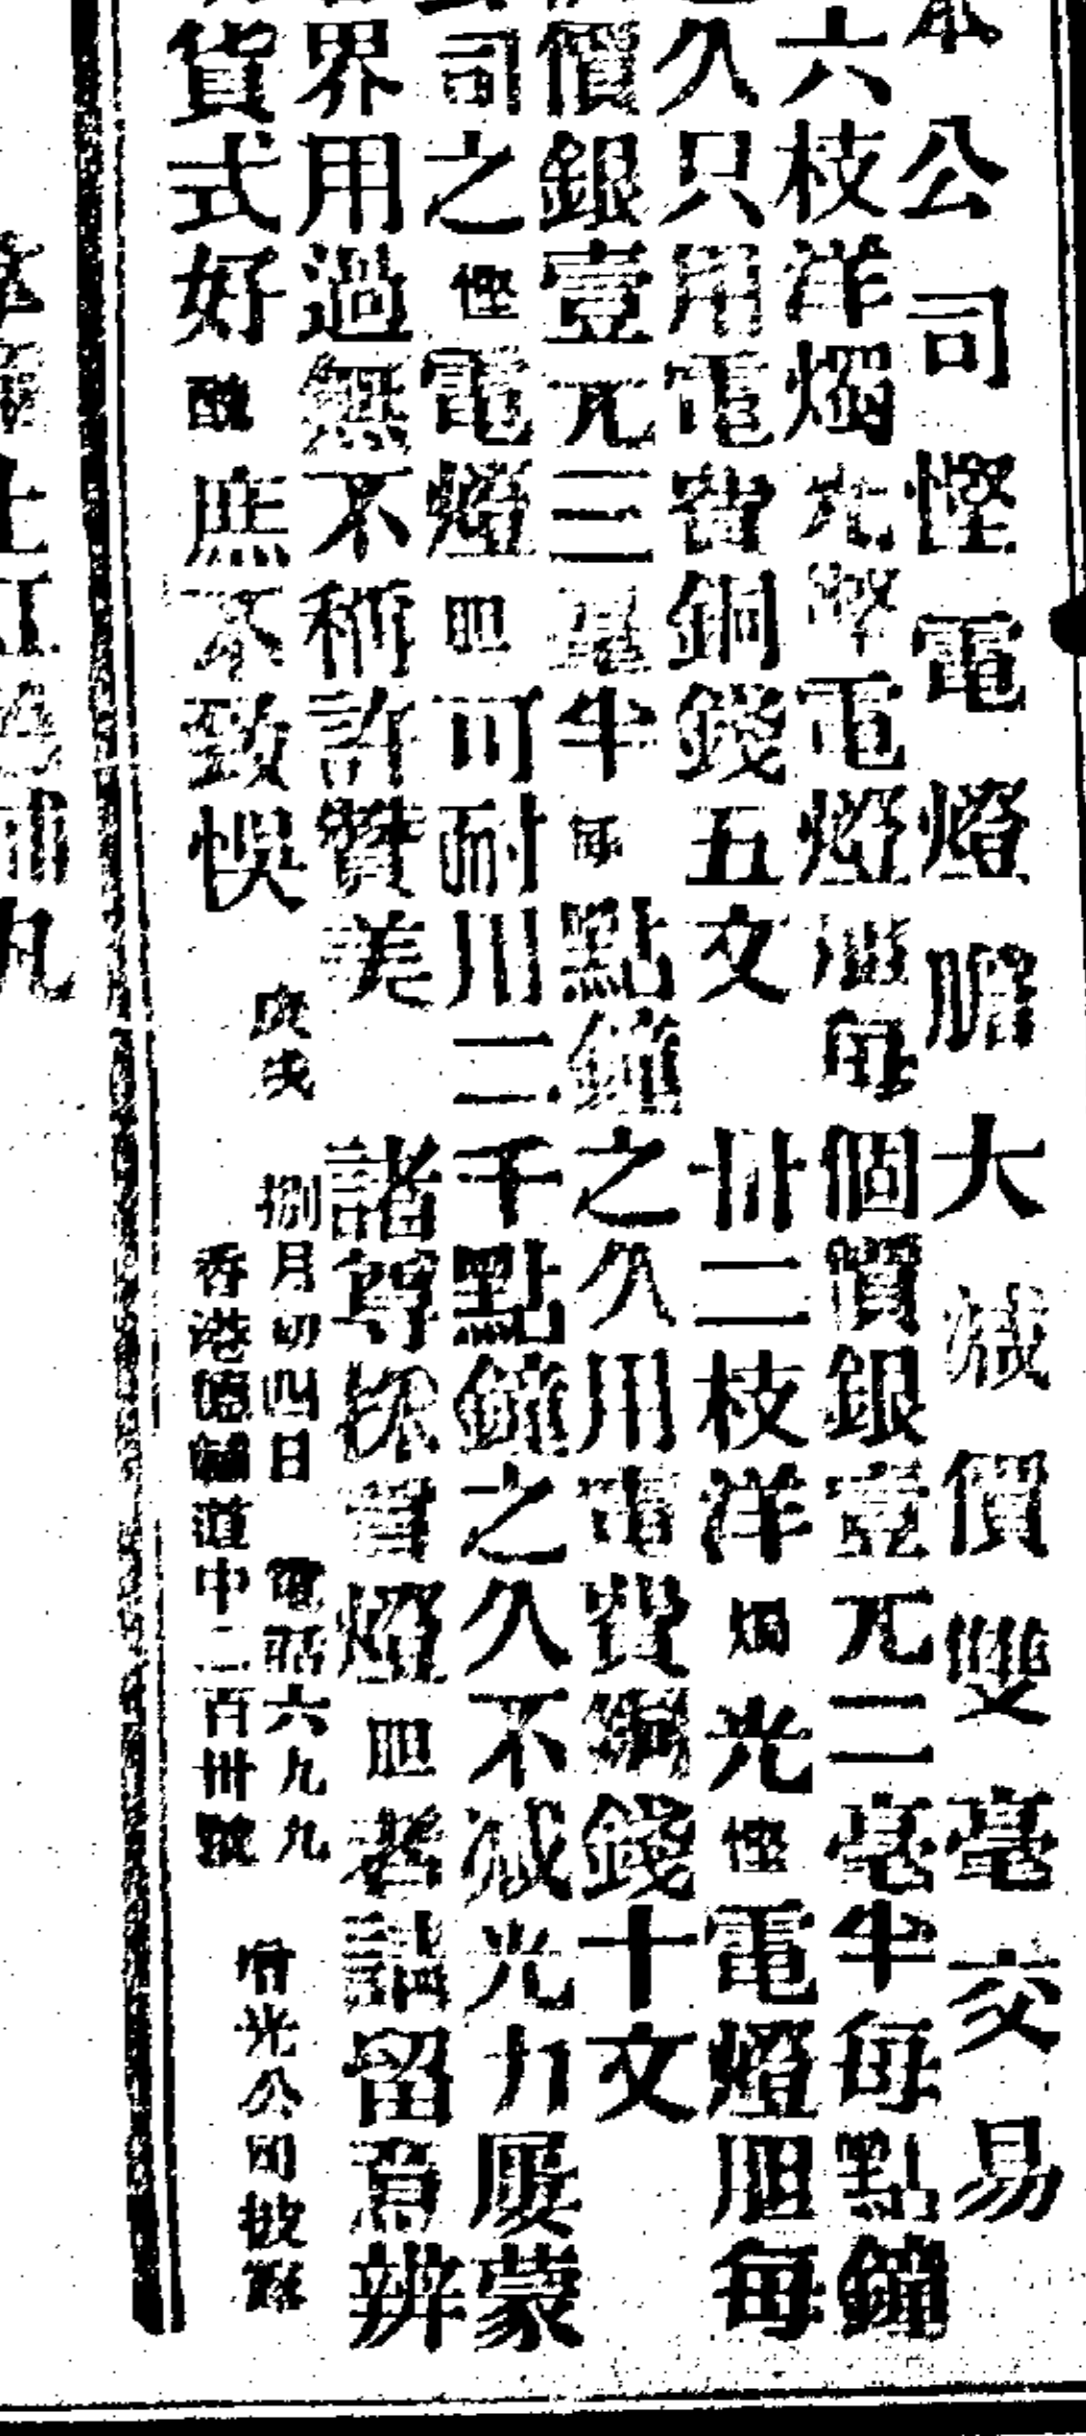 本公司慳電燈膽大減價雙毫交易
六枝洋燭光慳電燈胆每個價銀壹元二毫半每點鐘
久只用電費銅錢五文 卅二枝洋燭光慳電燈胆每
價銀壹元三毫半每點鐘之久用電費銅錢十文
司之慳電燈胆可耐用二千點鐘之久不減光力屢蒙
界用過無不稱許贊美 諸尊採買燈胆者請留意辨
貨式好醜庶不致悞
庚戌 捌月初四日 電話六九九
香港德輔道中二百卅號
光公司披